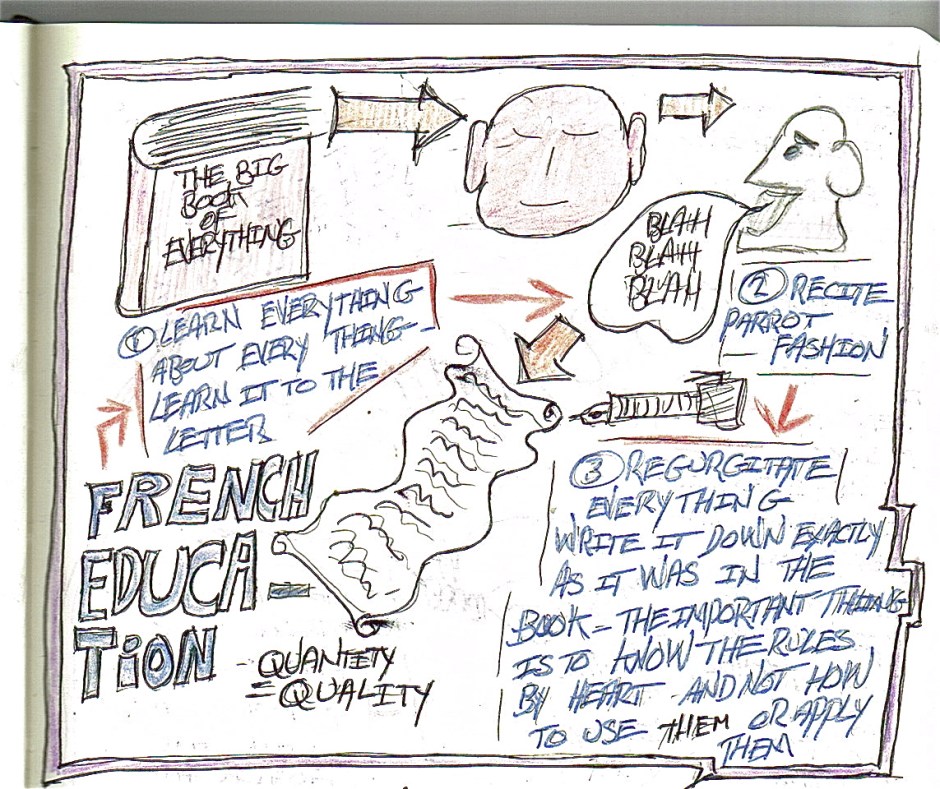 THE BIG
BOOK
OF
EVERYTHING
BLAH
BLAH
BLYAH
① LEARN EVERYTHING
ABOUT EVERY THING -
LEARN IT TO THE
LETTER
② RECITE
PARROT
FASHION
③ REGURGITATE
EVERYTHING
WRITE IT DOWN EXACTLY
AS IT WAS IN THE
BOOK - THE IMPORTANT THING
IS TO KNOW THE RULES
BY HEART - AND NOT HOW
TO USE THEM OR APPLY
THEM
FRENCH
EDUCA
TiON
QUANTITY
= QUALITY